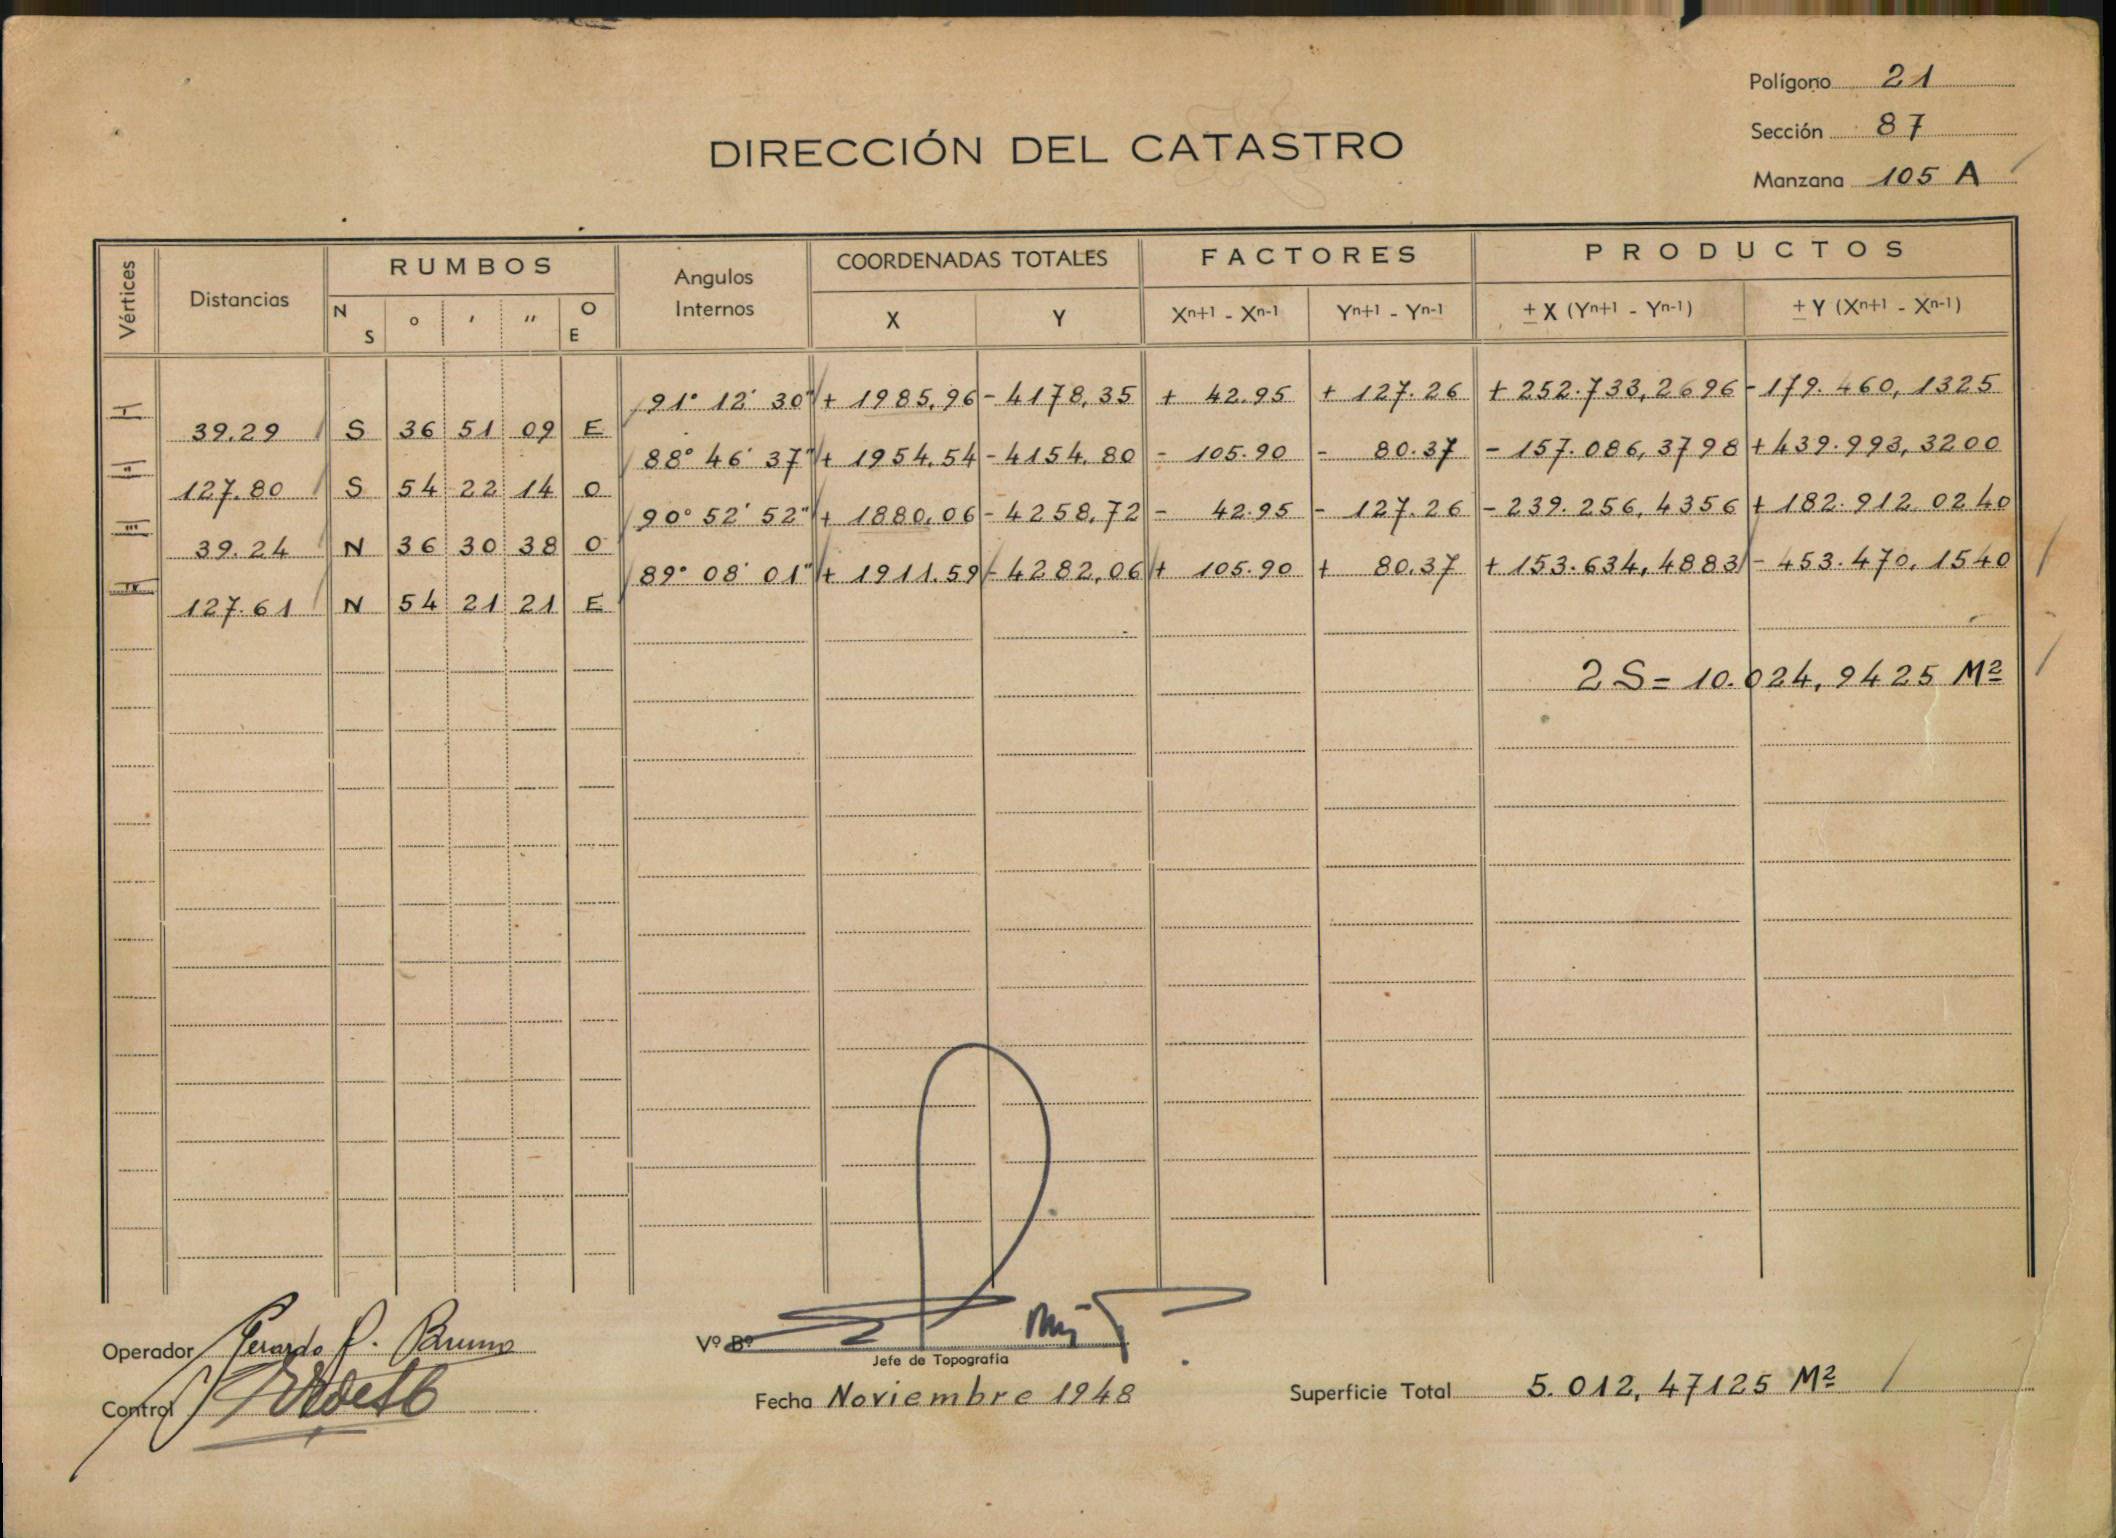 Polígono 21
Sección 87
Manzana 105 A
DIRECCIÓN DEL CATASTRO
Vértices Distancias RUMBOS Angulos Internos COORDENADAS TOTALES FACTORES PRODUCTOS
N S ° ' " O E X Y Xn+1 - Xn-1 Yn+1 - Yn-1 ± X (Yn+1 - Yn-1) ± Y (Xn+1 - Xn-1)
I 91° 12' 30" + 1985,96 - 4178,35 + 42.95 + 127.26 + 252.733,2696 - 179.460,1325
39.29 S 36 51 09 E
II 88° 46' 37" + 1954.54 - 4154.80 - 105.90 - 80.37 - 157.086,3798 + 439.993,3200
127.80 S 54 22 14 O
III 90° 52' 52" + 1880,06 - 4258,72 - 42.95 - 127.26 - 239.256,4356 + 182.912,0240
39.24 N 36 30 38 O
IV 89° 08' 01" + 1911.59 - 4282,06 + 105.90 + 80.37 + 153.634,4883 - 453.470,1540
127.61 N 54 21 21 E
2 S = 10.024,9425 M²
Operador Gerardo P. Bruno
Vº Bº
Jefe de Topografía
Control
Fecha Noviembre 1948
Superficie Total 5.012,47125 M²